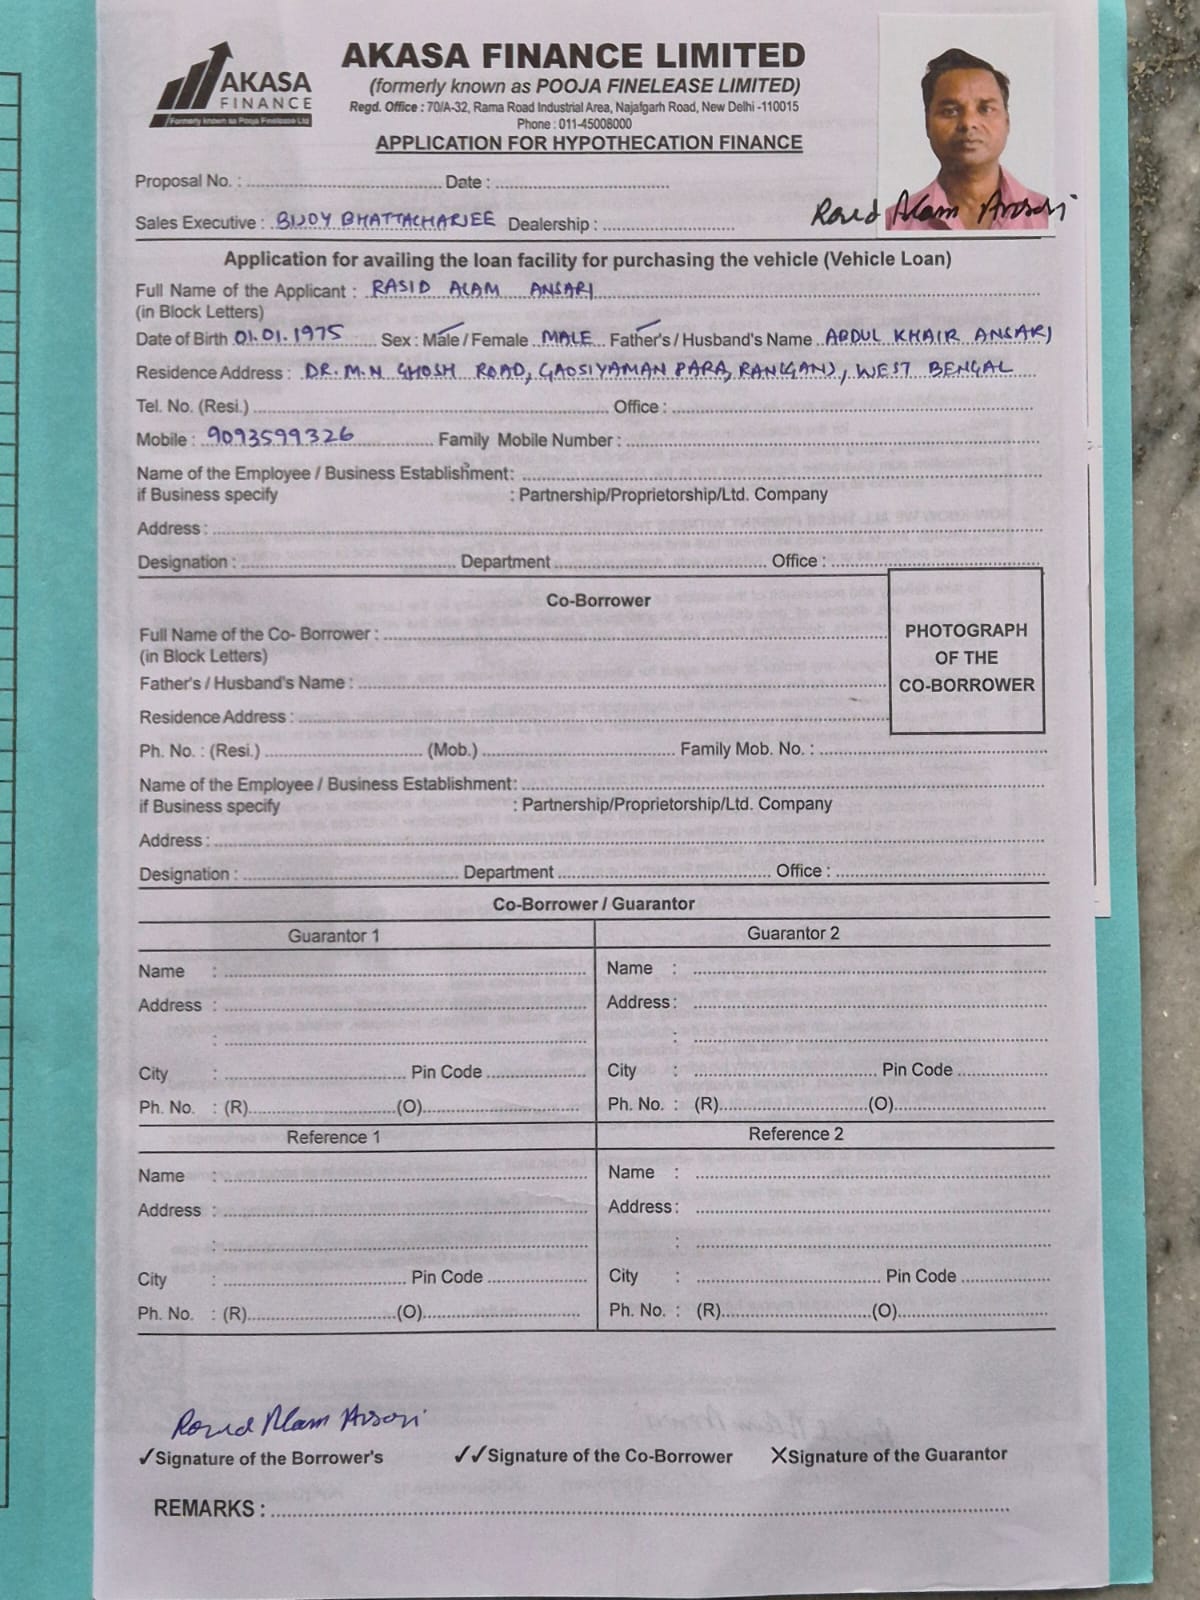 AKASA FINANCE
Formerly known as Pooja Finelease Ltd
AKASA FINANCE LIMITED
(formerly known as POOJA FINELEASE LIMITED)
Regd. Office : 70/A-32, Rama Road Industrial Area, Najafgarh Road, New Delhi -110015
Phone : 011-45008000
APPLICATION FOR HYPOTHECATION FINANCE
Proposal No. : Date :
Sales Executive : BIJOY BHATTACHARJEE Dealership :
Alam Ansari
Application for availing the loan facility for purchasing the vehicle (Vehicle Loan)
Full Name of the Applicant : RASID ALAM ANSARI
(in Block Letters)
Date of Birth 01.01.1975 Sex : Male / Female MALE Father's / Husband's Name ABDUL KHAIR ANSARI
Residence Address : DR. M.N GHOSH ROAD, GAOSIYAMAN PARA, RANIGANJ, WEST BENGAL
Tel. No. (Resi.) Office :
Mobile : 9093599326 Family Mobile Number :
Name of the Employee / Business Establishment:
if Business specify : Partnership/Proprietorship/Ltd. Company
Address :
Designation : Department Office :
Co-Borrower
PHOTOGRAPH OF THE CO-BORROWER
Full Name of the Co- Borrower :
(in Block Letters)
Father's / Husband's Name :
Residence Address :
Ph. No. : (Resi.) (Mob.) Family Mob. No. :
Name of the Employee / Business Establishment:
if Business specify : Partnership/Proprietorship/Ltd. Company
Address :
Designation : Department Office :
Co-Borrower / Guarantor
Guarantor 1 Guarantor 2
Name : Name :
Address : Address :
: :
City : Pin Code City : Pin Code
Ph. No. : (R) (O) Ph. No. : (R) (O)
Reference 1 Reference 2
Name : Name :
Address : Address :
: :
City : Pin Code City : Pin Code
Ph. No. : (R) (O) Ph. No. : (R) (O)
Alam Ansari
✓Signature of the Borrower's ✓✓Signature of the Co-Borrower XSignature of the Guarantor
REMARKS :